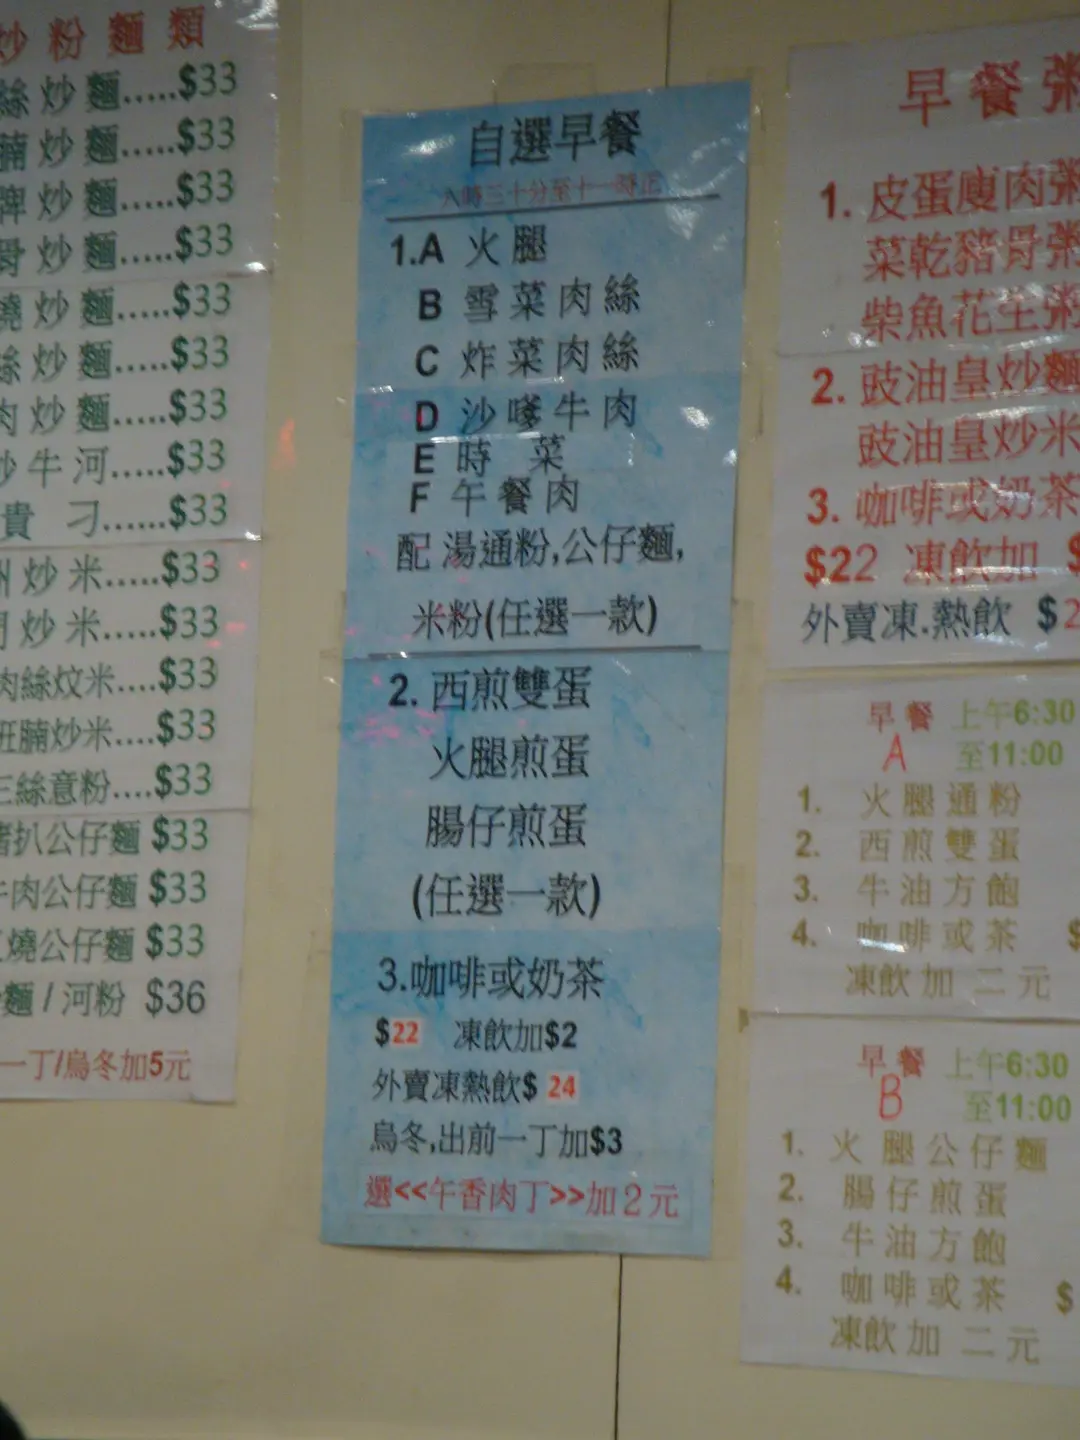 炒粉麵類
絲炒麵.....$33
腩炒麵.....$33
牌炒麵.....$33
炒麵.....$33
燒炒麵.....$33
絲炒麵.....$33
肉炒麵.....$33
炒牛河.....$33
貴 刁......$33
炒米.....$33
炒米.....$33
肉絲炆米....$33
班腩炒米....$33
三絲意粉....$33
豬扒公仔麵 $33
牛肉公仔麵 $33
燒公仔麵 $33
麵/河粉 $36
一丁/烏冬加5元
自選早餐
八時三十分至十一時正
1.A 火腿
B 雪菜肉絲
C 炸菜肉絲
D 沙嗲牛肉
E 時 菜
F 午餐肉
配 湯通粉,公仔麵,
米粉(任選一款)
2. 西煎雙蛋
火腿煎蛋
腸仔煎蛋
(任選一款)
3.咖啡或奶茶
$22 凍飲加$2
外賣凍熱飲$ 24
烏冬,出前一丁加$3
選<<午香肉丁>>加2元
早餐粥
1. 皮蛋廋肉粥
菜乾豬骨粥
柴魚花生粥
2. 豉油皇炒麵
豉油皇炒米
3. 咖啡或奶茶
$22 凍飲加 $
外賣凍.熱飲 $2
早餐 上午6:30
A 至11:00
1. 火腿通粉
2. 西煎雙蛋
3. 牛油方飽
4. 咖啡或茶 $
凍飲加二元
早餐 上午6:30
B 至11:00
1. 火腿公仔麵
2. 腸仔煎蛋
3. 牛油方飽
4. 咖啡或茶 $
凍飲加二元